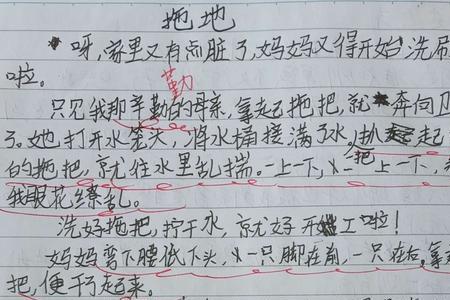 拖地
呀，家里又有点脏了，妈妈又得开始洗刷
啦。
勤
只见我那辛勤的母亲，拿起拖把，就奔向卫
了。她打开水笼头，将水桶接满了水，起
的拖把，就往水里乱揣。一上一下，一上一下，
我眼花缭乱。
洗好拖把，拧干水，就好开工啦！
妈妈弯下腰低下头，一只脚在前，一只在右。拿
把，便干了起来。